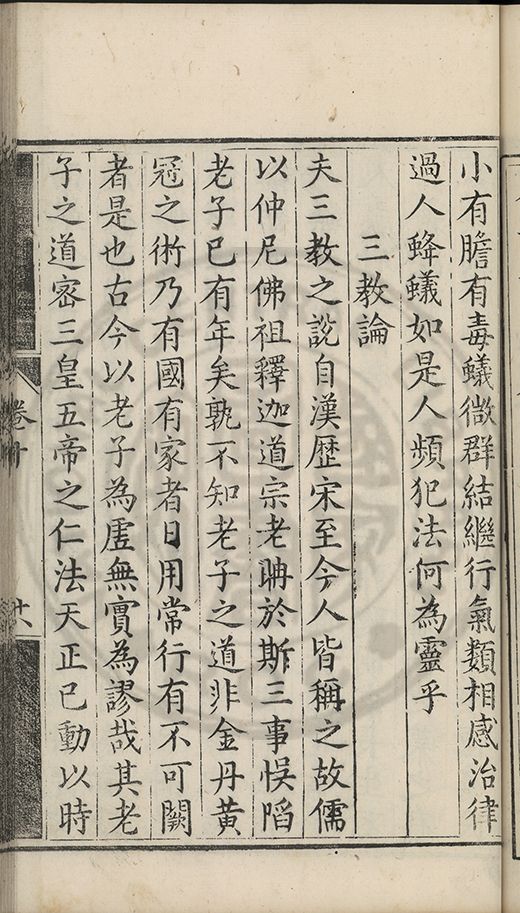 小有膽有毒蟻微群結繼行氣類相感治律
過人蜂蟻如是人頻犯法何為靈乎
三教論
夫三教之說自漢歷宋至今人皆稱之故儒
以仲尼佛祖釋迦道宗老聃於斯三事悞陷
老子已有年矣孰不知老子之道非金丹黃
冠之術乃有國有家者日用常行有不可闕
者是也古今以老子為虛無實為謬哉其老
子之道密三皇五帝之仁法天正已動以時
卷十
十八